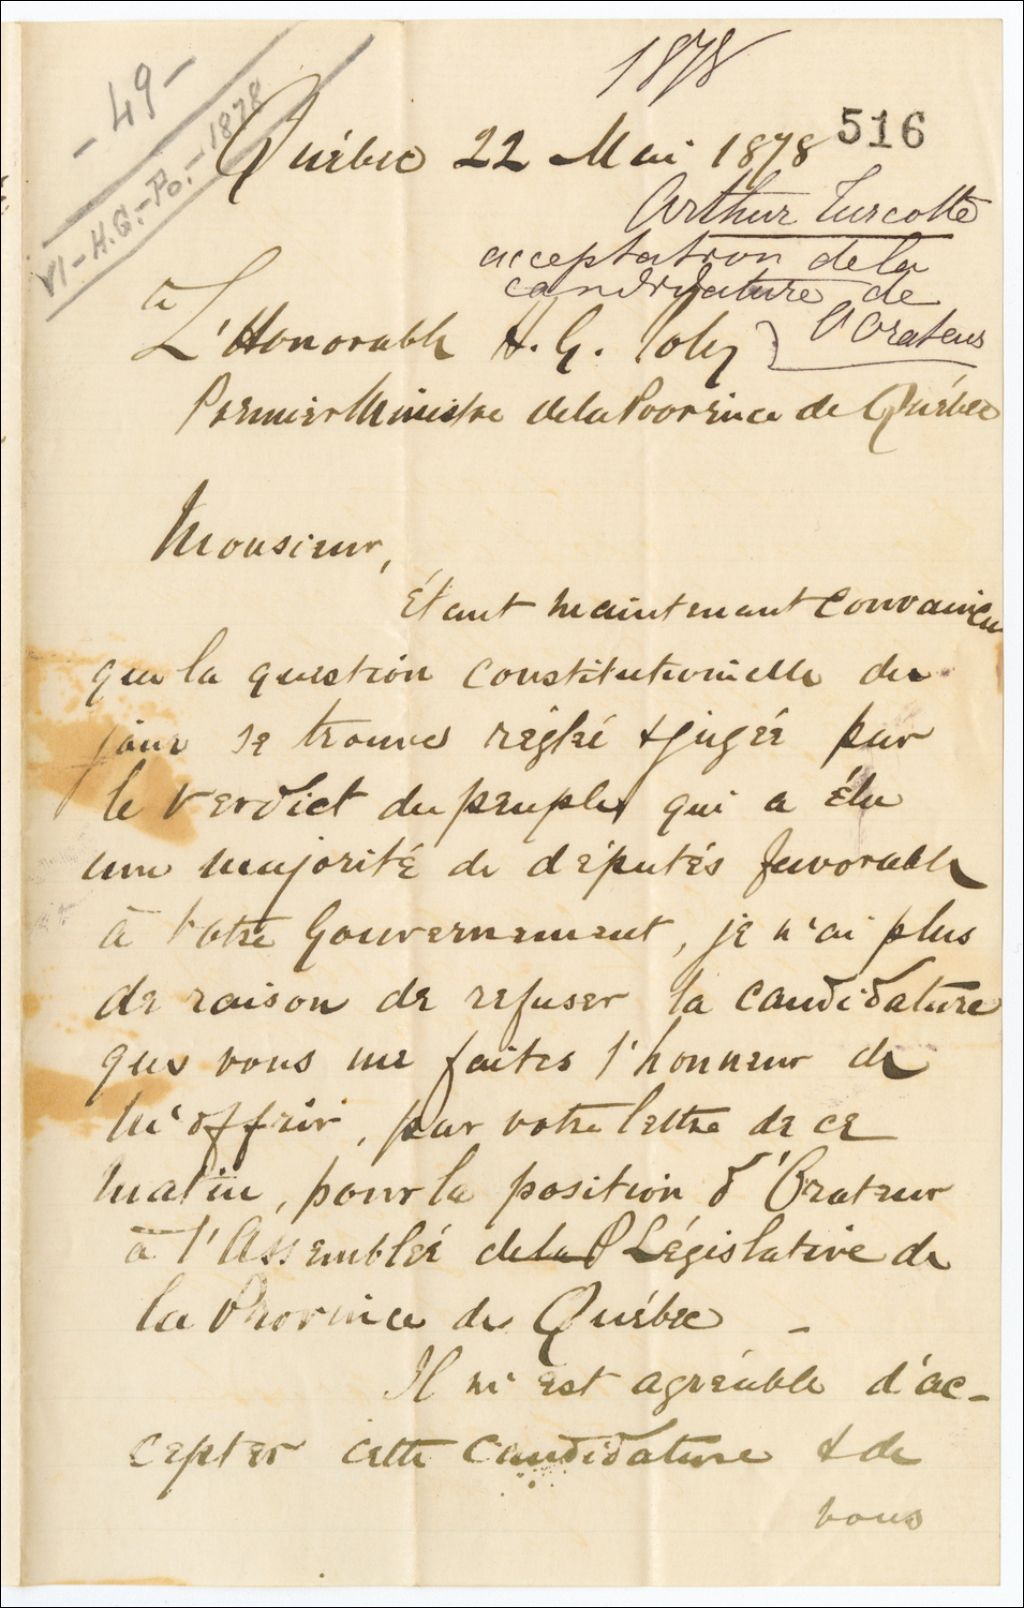 1878
- 49 -
VI - H.G. - Po. - 1878
516
Québec 22 Mai 1878
Arthur Turcotte
acceptation de la
candidature de
l'Orateur
à
L'Honorable H. G. Joly
Premier Ministre de la Province de Québec
Monsieur,
Étant maintenant convaincu
que la question constitutionnelle du
jour se trouve réglé & jugée par
le verdict du peuple qui a élu
une majorité de députés favorable
à votre Gouvernement, je n'ai plus
de raison de refuser la candidature
que vous me faites l'honneur de
m'offrir, par votre lettre de ce
matin, pour la position d'Orateur
à l'Assemblée de la P Législative de
la Province de Québec -
Il m'est agréable d'ac-
cepter cette candidature & de
vous